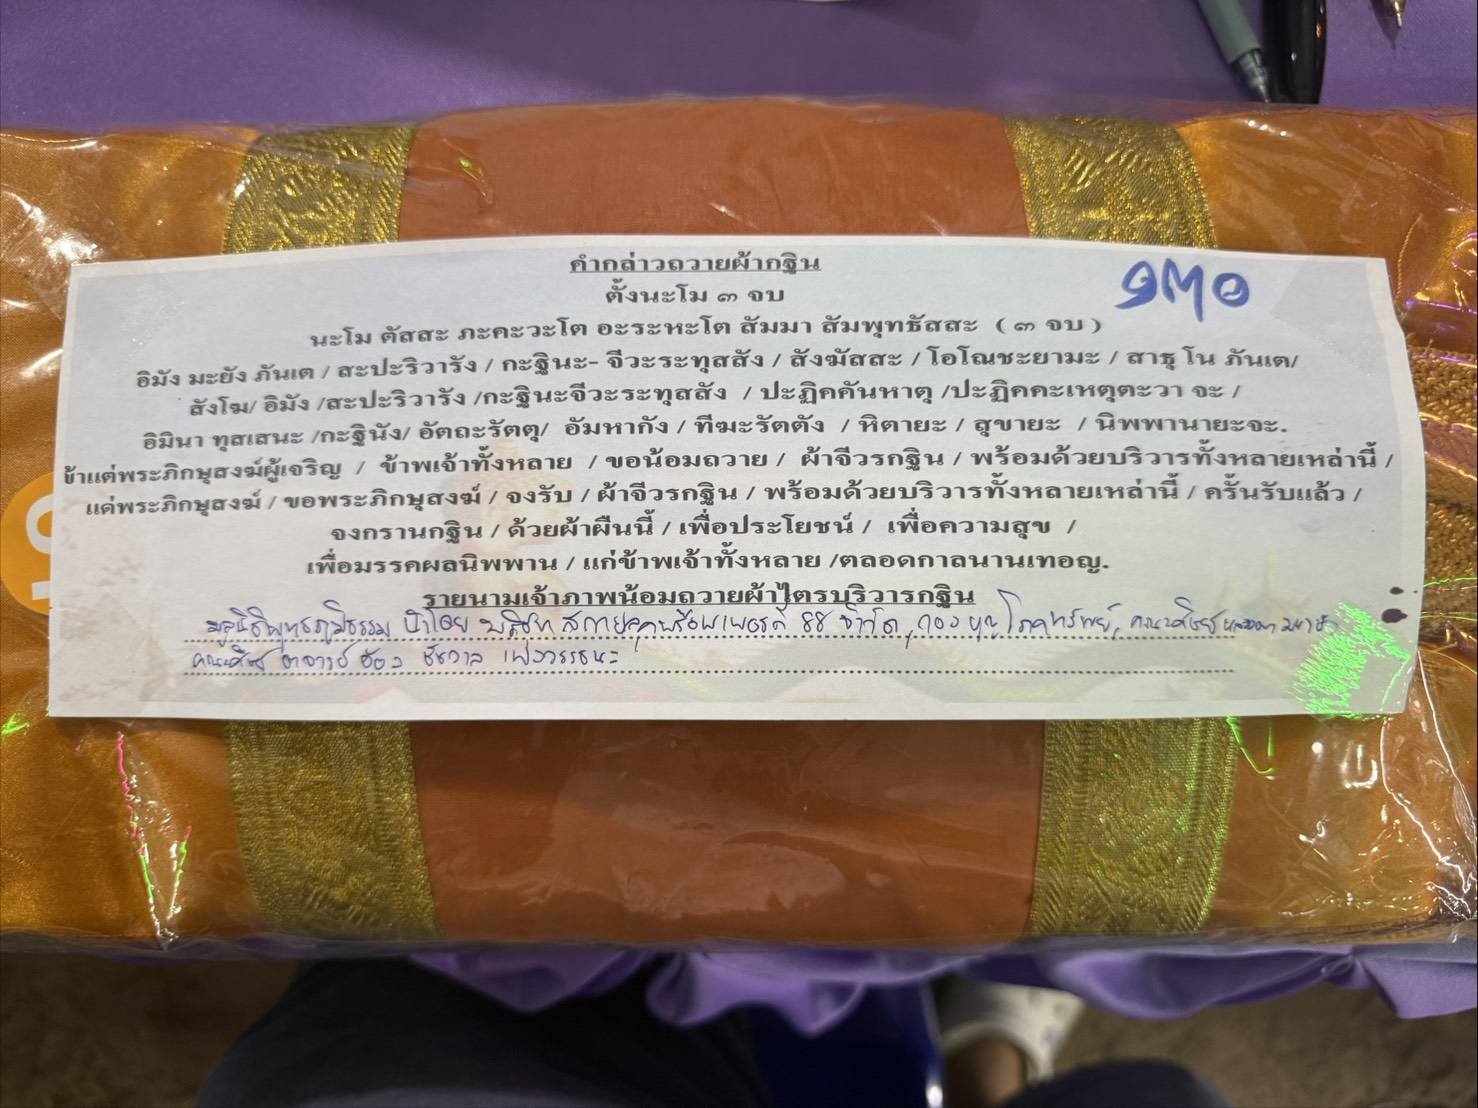 คำกล่าวถวายผ้ากฐิน
๑๓๐
ตั้งนะโม ๓ จบ
นะโม ตัสสะ ภะคะวะโต อะระหะโต สัมมา สัมพุทธัสสะ ( ๓ จบ )
อิมัง มะยัง ภันเต / สะปะริวารัง / กะฐินะ- จีวะระทุสสัง / สังฆัสสะ / โอโณชะยามะ / สาธุ โน ภันเต/
สังโฆ/ อิมัง /สะปะริวารัง /กะฐินะจีวะระทุสสัง / ปะฏิคคันหาตุ /ปะฏิคคะเหตุตะวา จะ /
อิมินา ทุสเสนะ /กะฐินัง/ อัตถะรัตตุ/ อัมหากัง / ทีฆะรัตตัง / หิตายะ / สุขายะ / นิพพานายะจะ.
ข้าแต่พระภิกษุสงฆ์ผู้เจริญ / ข้าพเจ้าทั้งหลาย / ขอน้อมถวาย / ผ้าจีวรกฐิน / พร้อมด้วยบริวารทั้งหลายเหล่านี้ /
แด่พระภิกษุสงฆ์ / ขอพระภิกษุสงฆ์ / จงรับ / ผ้าจีวรกฐิน / พร้อมด้วยบริวารทั้งหลายเหล่านี้ / ครั้นรับแล้ว /
จงกรานกฐิน / ด้วยผ้าผืนนี้ / เพื่อประโยชน์ / เพื่อความสุข /
เพื่อมรรคผลนิพพาน / แก่ข้าพเจ้าทั้งหลาย /ตลอดกาลนานเทอญ.
รายนามเจ้าภาพน้อมถวายผ้าไตรบริวารกฐิน
มูลนิธิพุทธภูมิธรรม นำโดย บริษัท 88 จำกัด, กองบุญโภคทรัพย์, คณะศิษย์
คณะศิษย์ อาจารย์ ชัชวาล เพ่งวรรธนะ